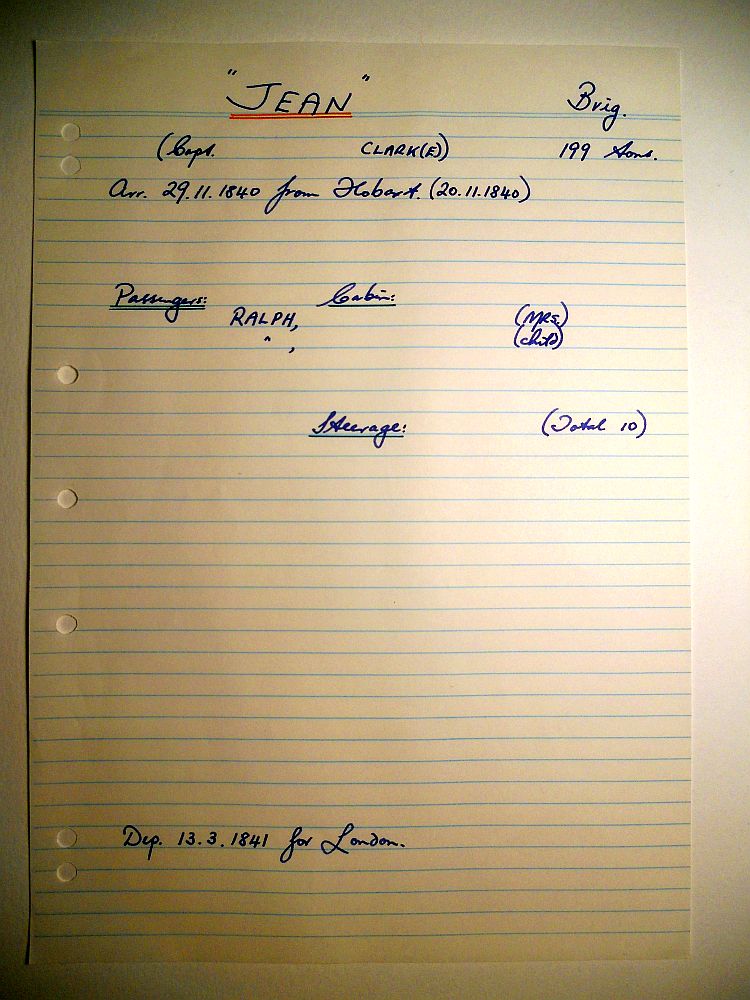 "JEAN" Brig.
(Capt. CLARK(E)) 199 tons.
Arr. 29.11.1840 from Hobart. (20.11.1840)
Passengers: Cabin:
RALPH, (MRS.)
" , (child)
Steerage: (Total 10)
Dep. 13.3.1841 for London.